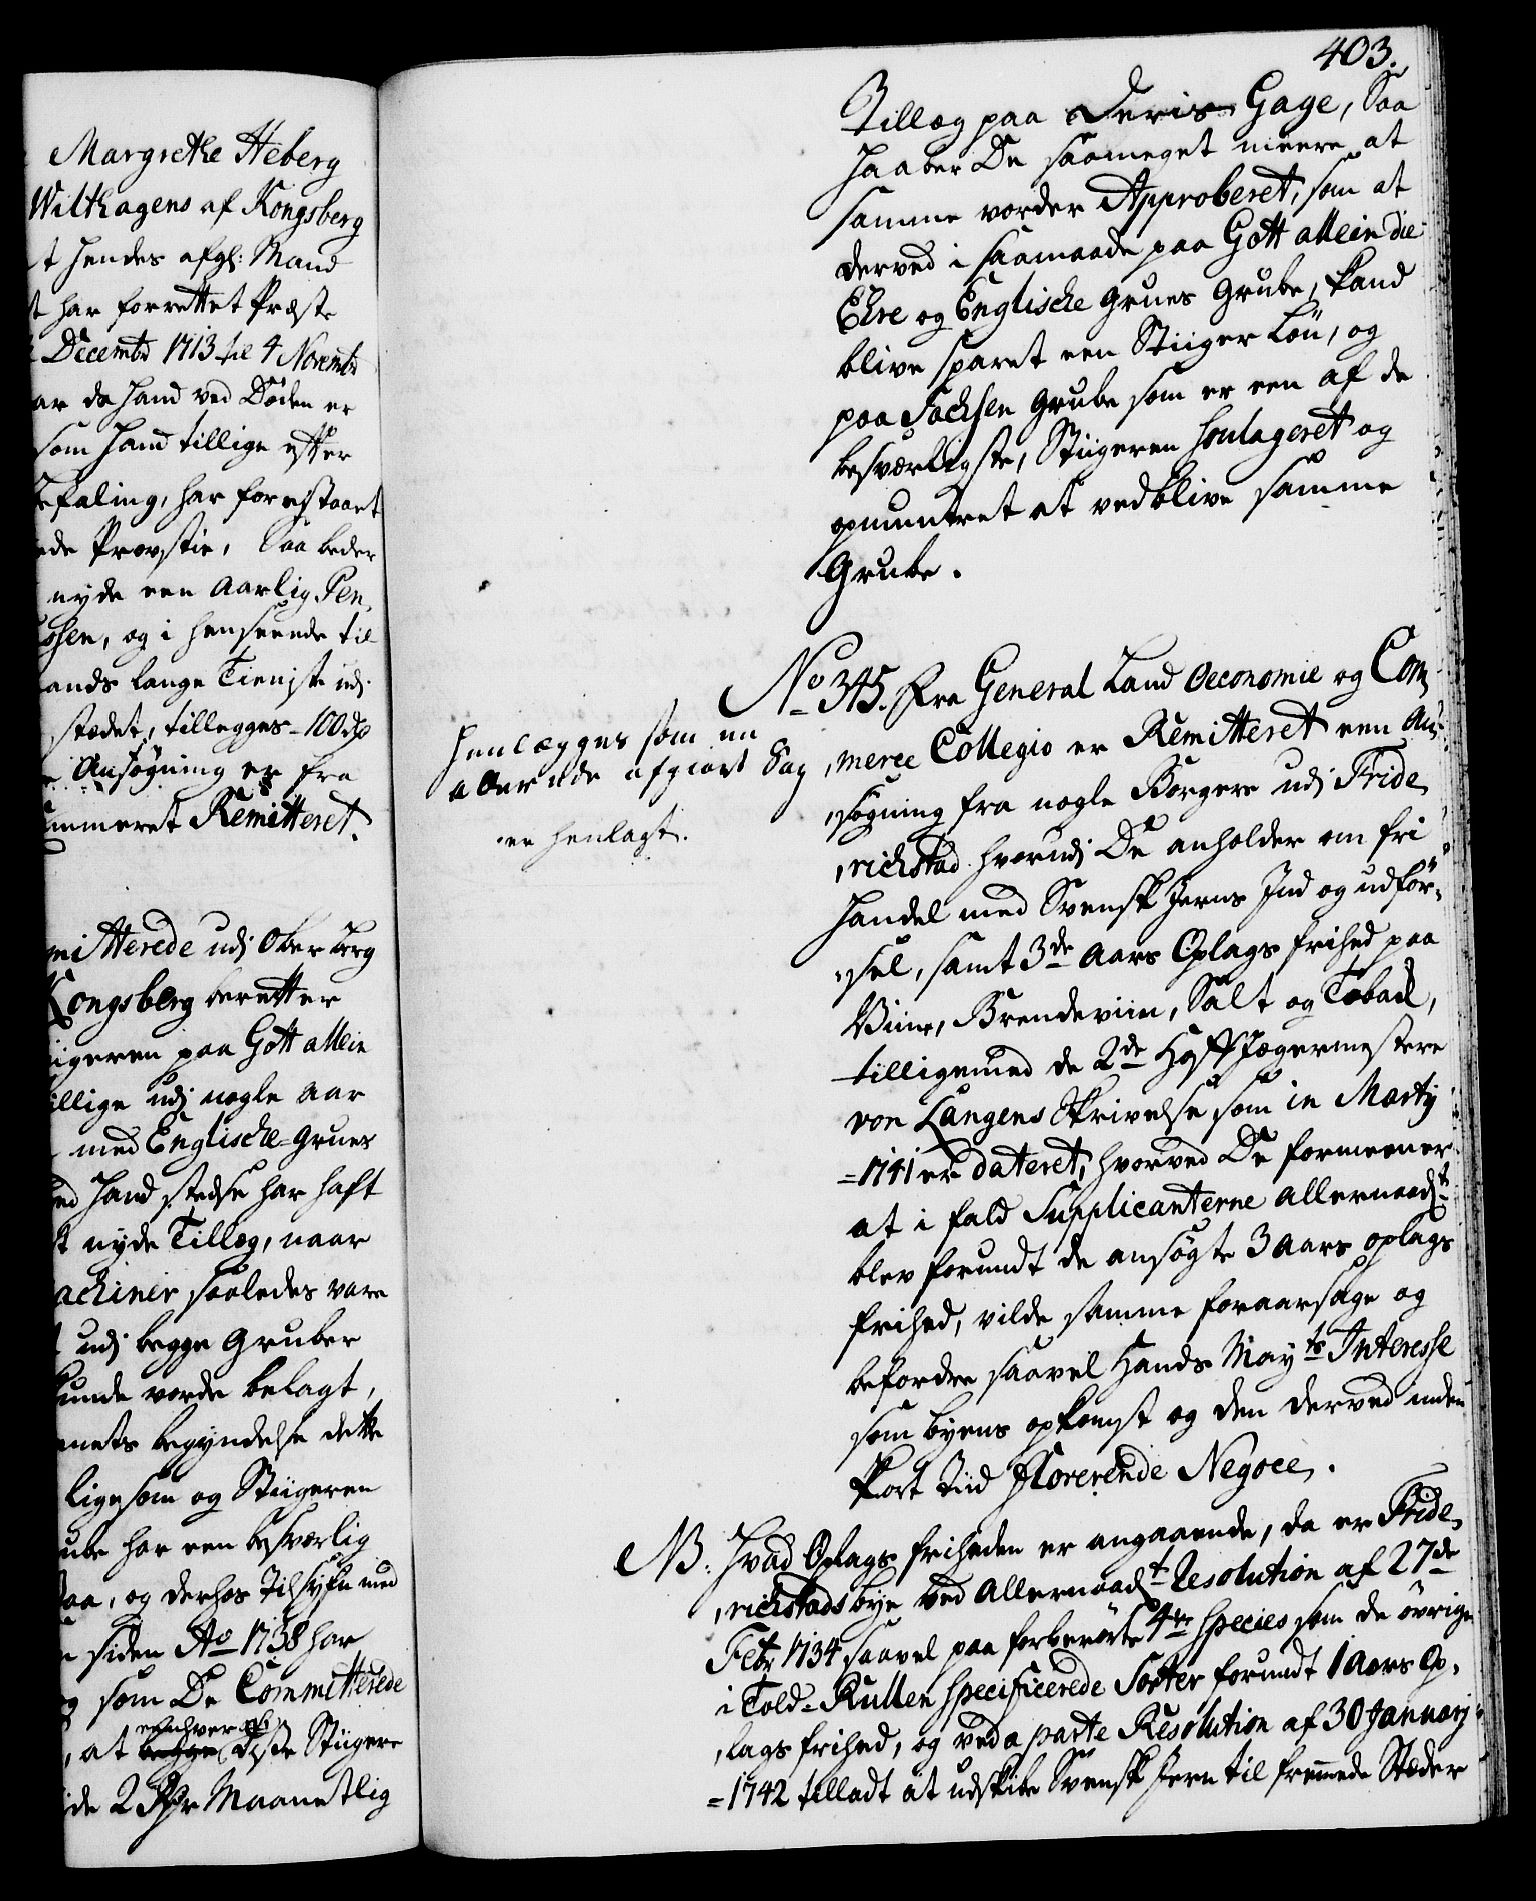 Margrethe Heberg
Wilthagens af Kongsberg
t hendes afgl: Mand
t har forrettet Præste
Decembr 1713 til 4 Novembr
ar da hand ved Döden er
som hand tillige efter
befaling, har forestaaet
ede Provstie, Saa beder
nyde een Aarlig Pen,
ssen, og i henseende til
ands lange Tieniste udj
stædet, tillegges 100 dr
Ansögning er fra
ammeret Remitteret.
mitterede udj Ober Berg
Kongsberg beretter
igeren paa Gott allein
illige udj nogle Aar
med Englische Grues
ed hand stedse har haft
t nyde Tillæg, naar
achiner saaledes vare
udj begge Gruber
kunde vorde belagt,
nets begyndelse dette
ligesom og Stiigeren
ube har een besværlig
aa, og derhos tilsyn med
siden Ao 1738 har
som De Committerede
eenhver af
, at begge disse Stiigere
de 2 Rdr Maanetlig
403.
Tillæg paa Deris Gage, Saa
haaber De saameget meere at
samme vorder Approberet, som at
derved i saamaade paa Gott allein die
Ehre og Englische Grues Grube, kand
blive sparet een Stiiger Lön, og
paa Sachsen Grube som er een af de
besværligste, Stiigeren soulageret og
opmuntret at vedblive samme
Grube.
No 345. Fra General Land Oeconomie og Com
henlægges som en
allerede afgiort Sag
er henlagt.
,merce Collegio er Remitteret een An,
,sögning fra nogle Borgere udj Fride,
,richstad hvorudj De anholder om fri
handel med Svensk Jerns Ind og udför,
,sel, samt 3de Aars Oplags frihed paa
Viine, Brendeviin, Salt og Toback,
tilligemed de 2de Hoff Jægermestere
von Langens Skrivelse som in Martij
1741 er dateret, hvorved De formeener
at i fald Supplicanterne allernaadt
blev forundt de ansögte 3 Aars oplags
frihed, vilde samme foraarsage og
befordre saavel Hands Mayts Interesse
som byens opkomst og den derved inden
kort tiid florerende Negoce.
NB. Hvad Oplags friheden er angaaende, da er Fride,
,richstads bye ved Allernaadt Resolution af 27de
Febr 1734 saavel paa forberörte 4re species som de övrige
i Told-Rullen specificerede Sorter forundt 1 Aars Op,
,lags frihed, og ved a parte Resolution af 30 Januarj
1742 tilladt at udskibe Svensk Jern til fremmede Stæder